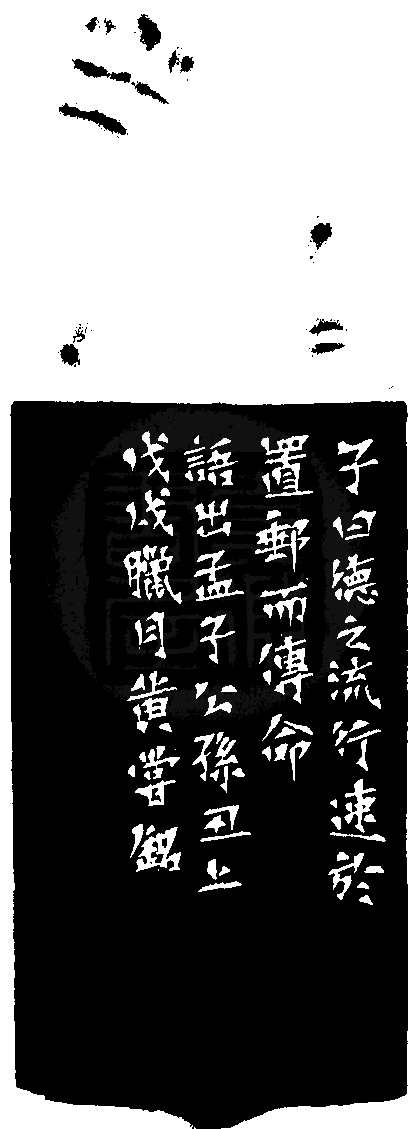 子曰德之流行速於
置郵而傳命
語出孟子公孫丑上
戊戌臘月黄嘗銘